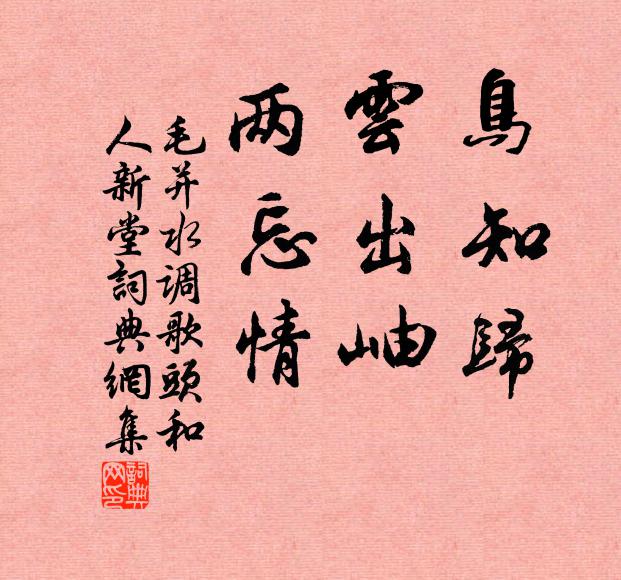 鳥知歸
雲出岫
两忘情
毛并水调歌頭和
人新堂詞典網集
詞典网印